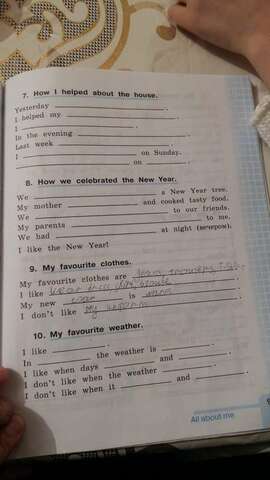 7. How I helped about the house.
Yesterday ____________.
I helped my ____________.
I ____________.
In the evening ____________.
Last week ____________.
I ____________ on Sunday.
____________ on ____________.
8. How we celebrated the New Year.
We ____________ a New Year tree.
My mother ____________ and cooked tasty food.
We ____________ to our friends.
My parents ____________ to me.
We had ____________ at night (вечером).
I like the New Year!
9. My favourite clothes.
My favourite clothes are jeans,
I like
My new is
I don't like my uniform.
10. My favourite weather.
I like ____________.
In ____________ the weather is ____________.
I like when days ____________ and ____________.
I don't like when the weather ____________.
I don't like when it ____________ and ____________.
All about me